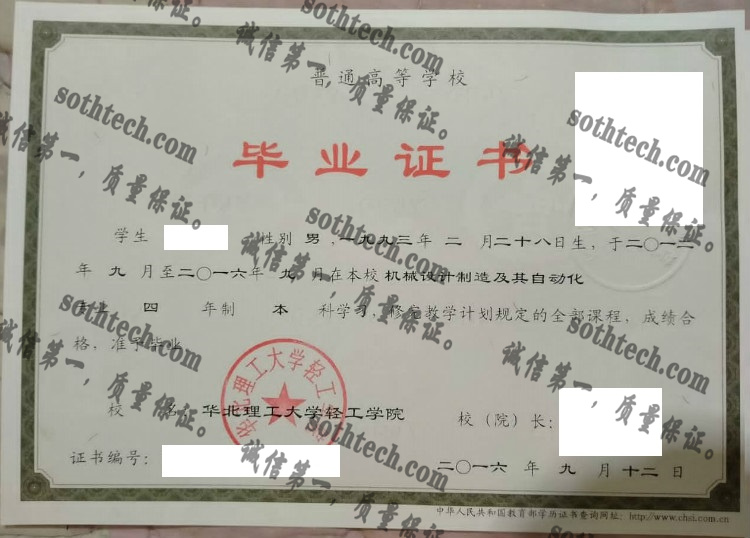 普通高等学校
毕业证书
学生 性别 男，一九九三年 二 月二十八日生，于二〇一二
年 九 月至二〇一六年 九 月在本校 机械设计制造及其自动化
专业 四 年制 本 科学习，修完教学计划规定的全部课程，成绩合
格，准予毕业。
华北理工大学轻工
校 名：华北理工大学轻工学院 校（院）长：
证书编号： 二〇一六 年 九 月 十二 日
中华人民共和国教育部学历证书查询网址：http://www.chsi.com.cn
sothtech.com
诚信第一，质量保证。
sothtech.com
诚信第一，质量保证。
sothtech.com
诚信第一，质量保证。
sothtech.com
诚信第一，质量保证。
sothtech.com
诚信第一，质量保证。
sothtech.com
诚信第一，质量保证。
sothtech.com
诚信第一，质量保证。
sothtech.com